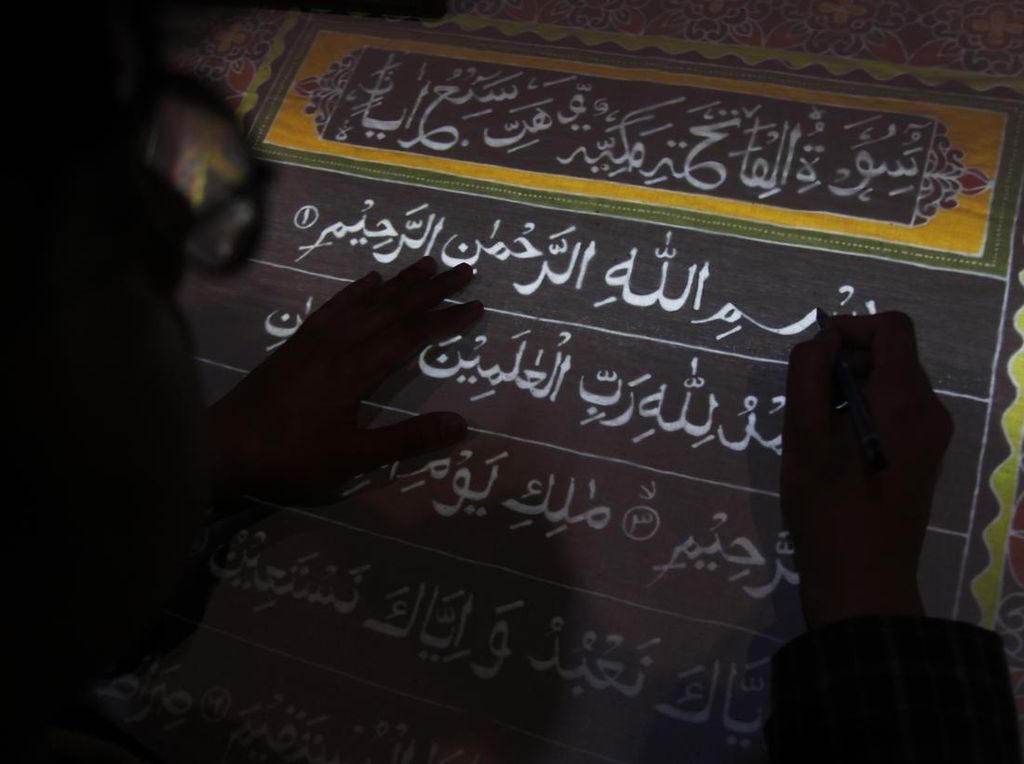 سُوْرَةُ الْفَاتِحَةِ مَكِّيَّةٌ وَّهِيَ سَبْعُ اٰيَاتٍ
بِسْمِ اللّٰهِ الرَّحْمٰنِ الرَّحِيْمِ ١
لِلّٰهِ رَبِّ الْعٰلَمِيْنَ
الرَّحِيْمِ ٣ مٰلِكِ يَوْمِ
نَعْبُدُ وَاِيَّاكَ نَسْتَعِيْنُ